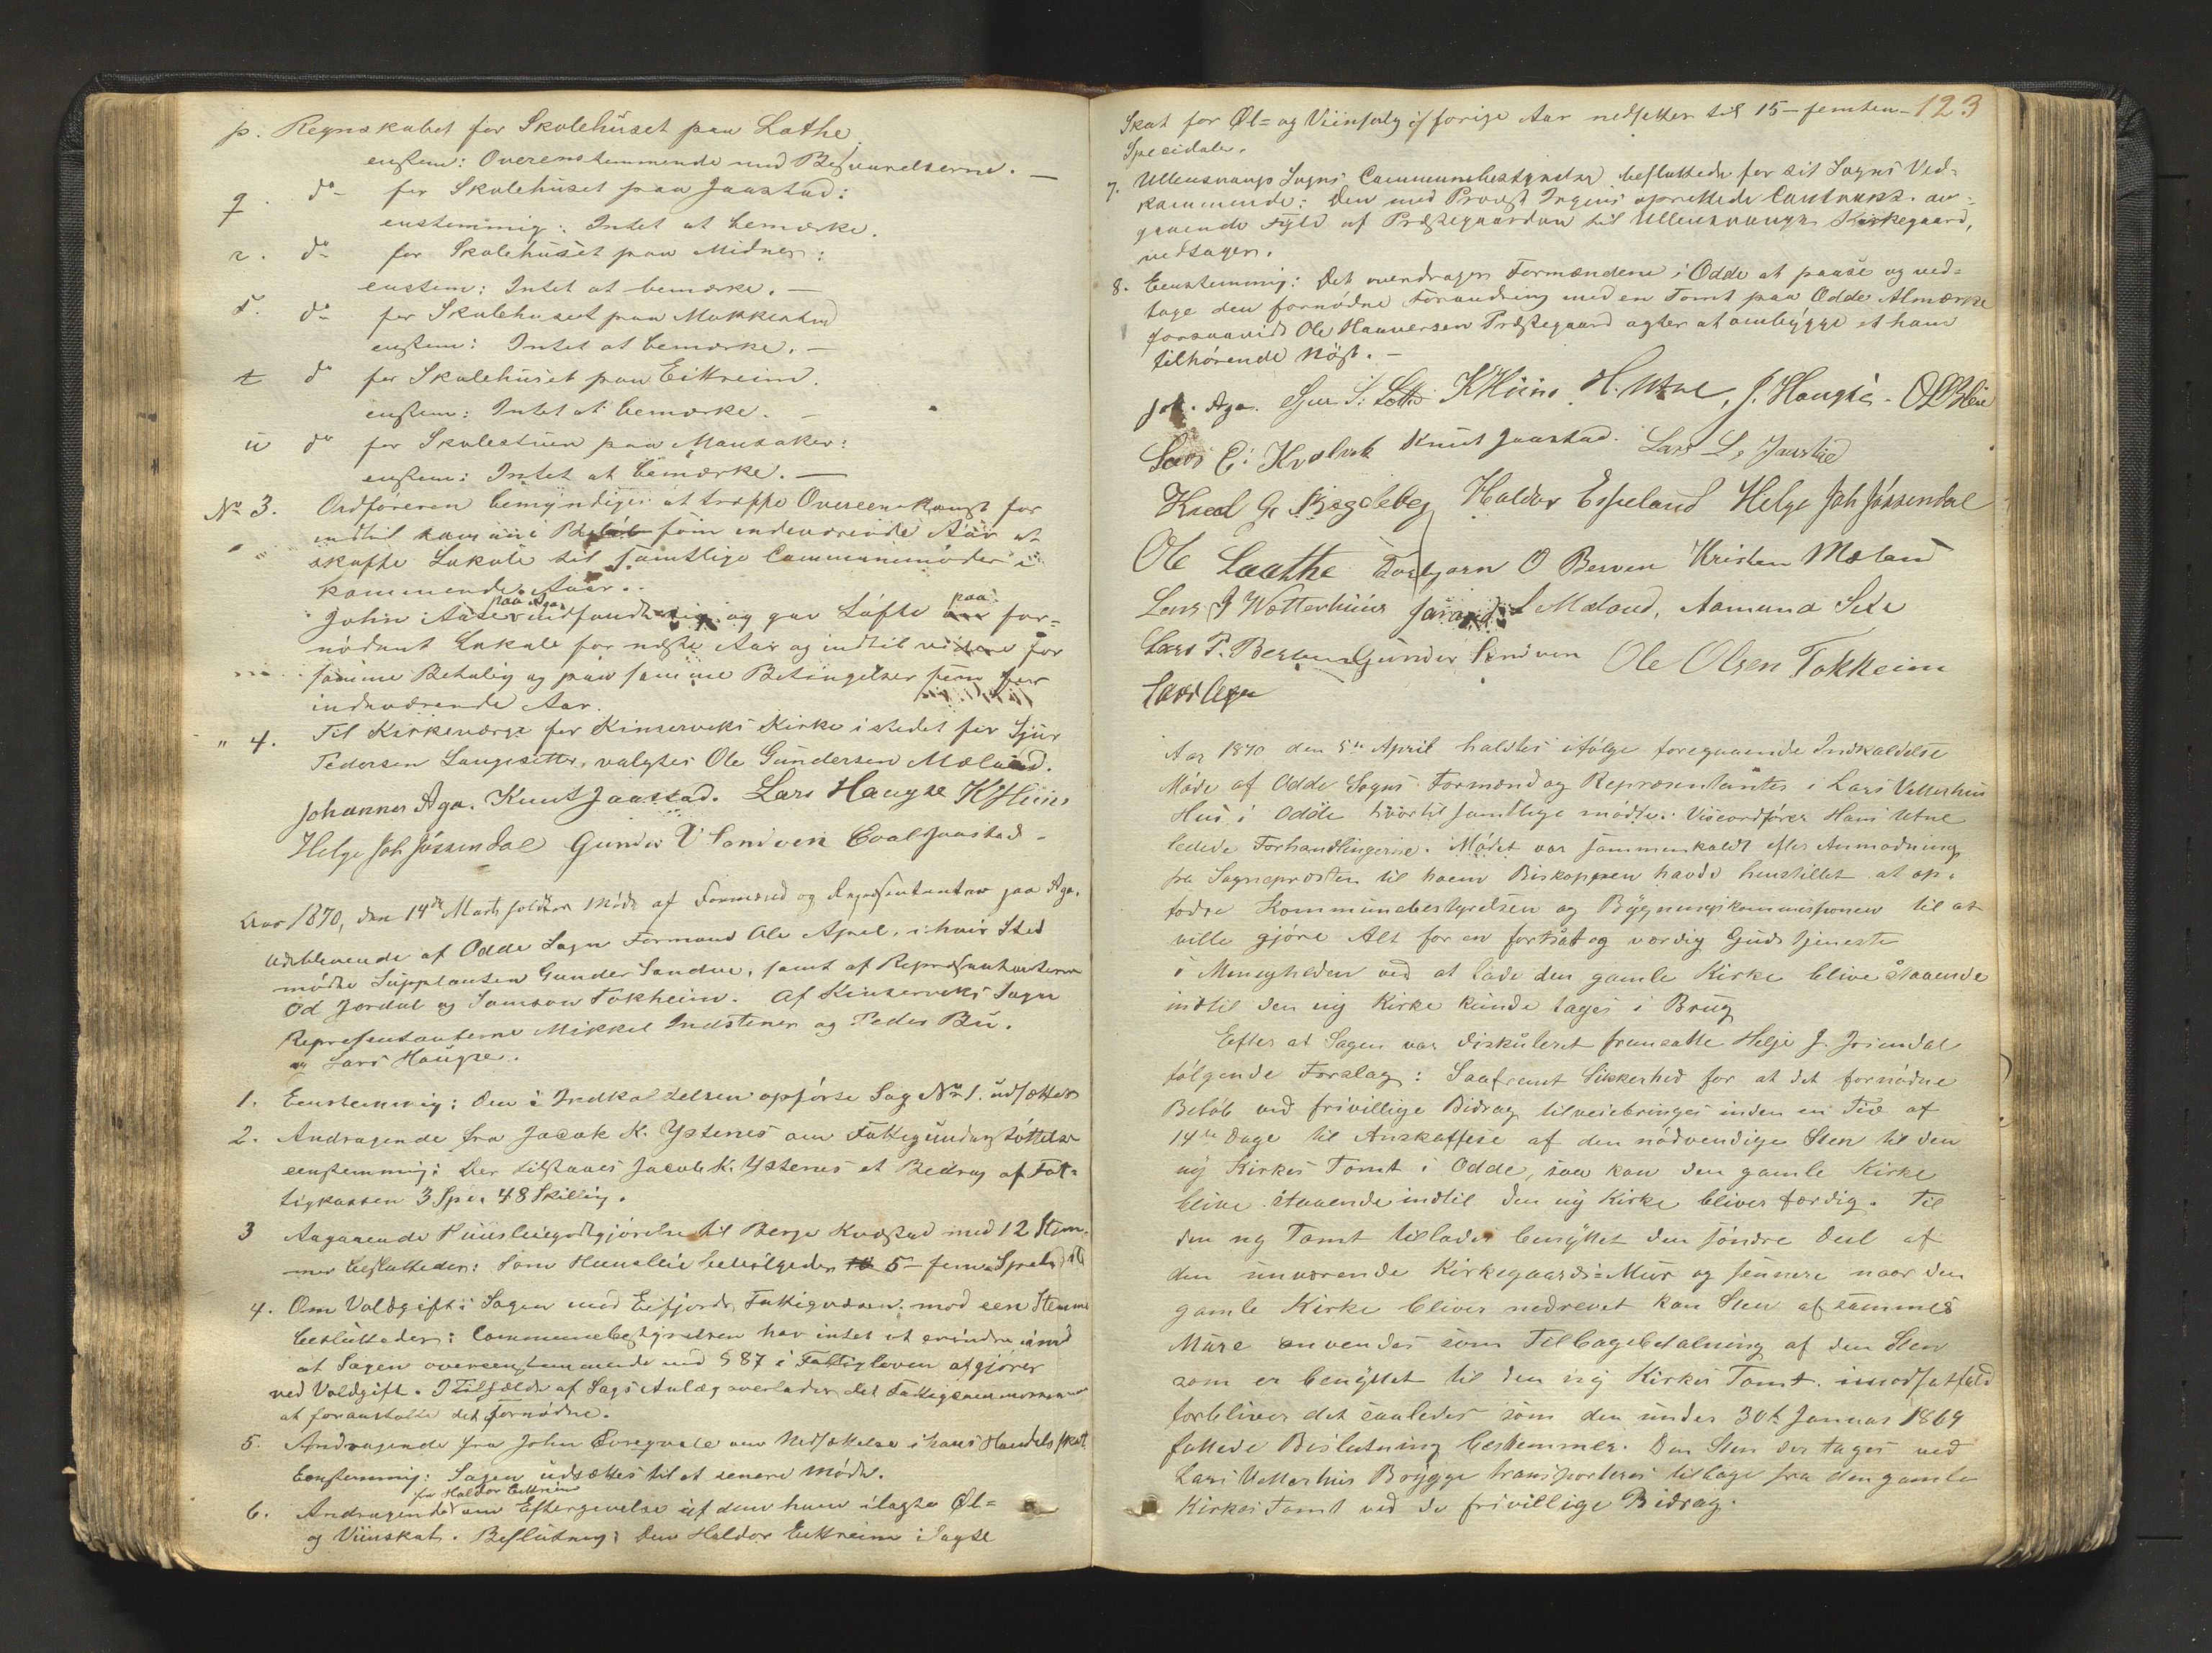 p. Regnskabet for Skolehuset paa Lothe
enstem: Overensstemmende med Besvarelserne. —
q. do for Skolehuset paa Jaastad:
enstemmig: Intet at bemærke.
r. do for Skolehuset paa Midnes:
enstem: Intet at bemærke. —
s. do for Skolehuset paa Mokkestad
enstem: Intet at bemærke. —
t do for Skolehuset paa Eitreim.
enstem: Intet at bemærke. —
u do for Skolestuen paa Mansaker:
enstem: Intet at bemærke. —
No 3. Ordføreren bemyndiges at træffe Overeenskomst for
indtil samme som indeværende Aar at
skaffe Lokale til samtlige Communemøder i
kommende Aar.
John Aase paa Aga indfandt sig og gav Løfte paa for-
nødent Lokale for næste Aar og indtil videre for
samme Betaling og paa samme Betingelser som for
indeværende Aar.
" 4. Til Kirkeværge for Kinserviks Kirke istedet for Sjur
Pedersen Langesetter, valgtes Ole Gundersen Mæland.
Johannes Aga. Knut Jaastad. Lars Haugse K Huus
Helge Joh Jóssendal Gunder V Sandven Eval Jaastad -
Aar 1870, den 14de Marts holdtes Møde af Formænd og Repræsentanter paa Aga.
Udeblevende af Odde Sogn Formand Ole Apel, i hvis Sted
mødte Supplanten Gunder Sandve, samt af Repræsentanterne
Od Jordal og Samson Tokheim. Af Kinserviks Sogn
Repræsentanterne Mikkel Indstenes og Peder Bu.
og Lars Haugse.
1. Eenstemmig: Den i Indkaldelsen opførte Sag No 1. udsættes
2. Andragende fra Jacob K. Ystenes om Fattigunderstøttelse
eenstemmig: Der tilstaaes Jacob K. Ystenes et Bidrag af Fat-
tigkassen 3 Spd. 48 Skilling.
3 Angaaende Huusleiegodtgjørelse til Berge Kvæstad med 12 Stem-
mer besluttedes: Som Huusleie bevilgedes 5 - fem - Specidlr
4. Om Voldgift i Sagen med Eifjords Fattigvæsen. mod een Stemme
besluttedes: Communebestyrelsen har intet at erindre imod
at Sagen overeenstemmende med § 87 i Fattigloven afgjøres
ved Voldgift. I Tilfælde af Sags Anlæg overlades det Fattigcommissionen
at foranstalte det Fornødne.
5. Andragende fra John Qvregvale om Nedsættelse i hans Handels skat
Eenstemmig: Sagen udsættes til et senere Møde.
6. Andragende fra Haldor Eitreim om Eftergivelse af den ham ilagte Øl-
og Viinskat. Beslutning: Den Haldor Eitreim ilagte
123
Skat for Øl- og Viinsalg i forige Aar nedsættes til 15 - femten -
Specidaler.
7. Ullensvangs Sogns Communebestyrelse besluttede for sit Sogns Ved-
kommende: Den med Provst Irgens oprettede Contrakt. an-
gaaende Fyld af Præstegaarden til Ullensvangs Kirkegaard,
vedtages.
8. Eenstemmig: Det overdrages Formændene i Odde at paase og ved-
tage den fornødne Forandring med en Tomt paa Odde Almærke
forsaavidt Ole Hanversen Præstegaard agter at ombygge et ham
tilhørende Nøst. —
Joh. Aga. Sjur S: Lothe K Huus H. Utne, J. Haugse -
Lars E: Kvalvik Knut Jaastad. Lars L. Jaastad
Knud G. Haldor Espeland Helge Joh Jóssendal
Ole Laathe Torbjørn O Berven Kristen Mæland
Lars J Wetterhuus L Mæland, Aamund Sexe
Lars P. Berven Gunder Sandven Ole Olsen Tokheim
Aar 1870 den 5te April holdtes ifølge foregaaende Indkaldelse
Møde af Odde Sogns Formænd og Repræsentanter i Lars Vetterhus
Hus i Odde hvortil samtlige mødte. Viceordfører Hans Utne
ledede Forhandlingerne. Mødet var sammenkaldt efter Anmodning
fra Sognepræsten til hvem Biskoppen havde henstillet at op-
fodre Kommunebestyrelsen og Bygningskommissionen til at
ville gjøre Alt for en fortsat og værdig Gudstjeneste
i Menigheden ved at lade den gamle Kirke blive staaende
indtil den ny Kirke kunde tages i Brug
Efter at Sagen var diskuteret fremsatte Helje J. Josendal
følgende Forslag: Saafremt Sikkerhed for at det fornødne
Beløb ved frivillige Bidrag tilveiebringes inden en Tid af
14de Dage til Anskaffelse af den nødvendige Sten til den
ny Kirkes Tomt i Odde, saa kan den gamle Kirke
blive staaende indtil den ny Kirke bliver færdig. Til
den ny Tomt tillades benyttet den søndre Deel af
den nuværende Kirkegaards-Mur og senere naar den
gamle Kirke bliver nedrevet kan Sten af sammes
Mure anvendes som Tilbagebetalning af den Sten
som er benyttet til den ny Kirkes Tomt. imodsatfald
forbliver det saaledes som den under 30te Januar 1869
fattede Beslutning bestemmer. Den Sten der tages ved
Lars Vetterhus Brygge transporteres tilbage fra den gamle
Kirkes Tomt ved de frivillige Bidrag.